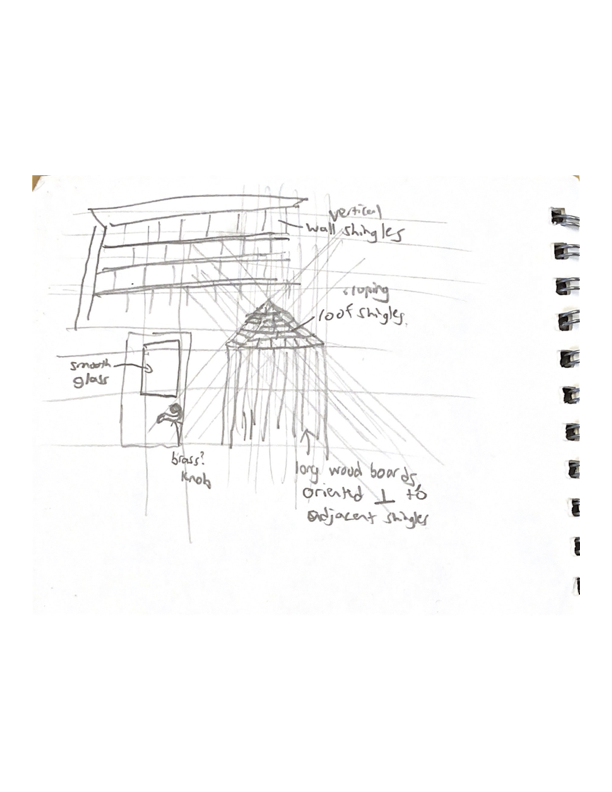 vertical
wall shingles
sloping
roof shingles.
smooth
glass
brass?
knob
long wood boards,
oriented ⊥ to
adjacent shingles